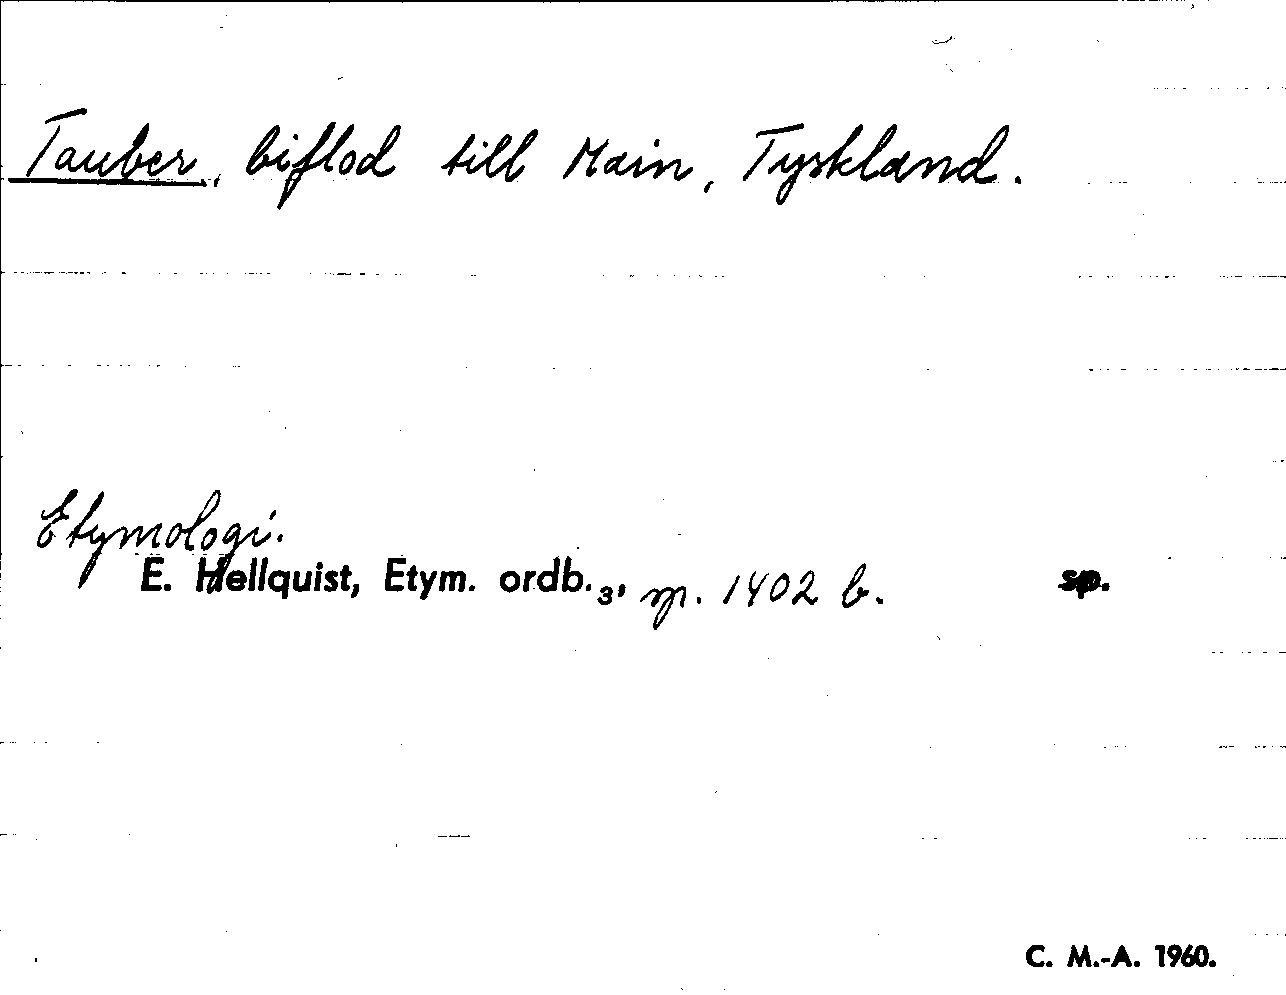 Tauber, biflod till Main, Tyskland.
Etymologi.
E. Hellquist, Etym. ordb.3, sp. 1402 b. sp.
C. M.-A. 1960.